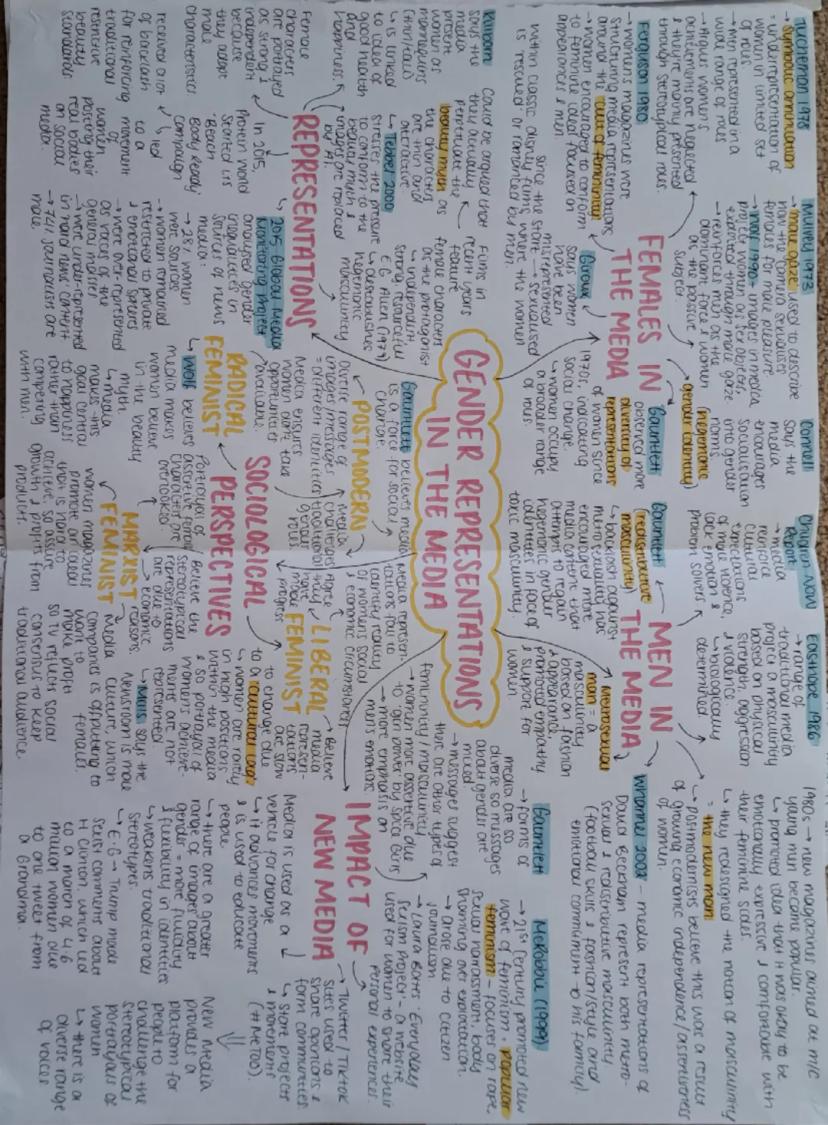 GENDER REPRESENTATIONS
IN THE MEDIA
FEMALES IN
THE MEDIA
Tuchemon 1978
→ Symbolic annihilation
= underrepresentation of
women in limited set
of roles
→ Men represented in a
wide range of roles
→ Argues women's
achievements are neglected
& they're mainly presented
through stereotypical roles.
Ferguson 1980
→ women's magazines were
structuring media representations
around the cult of femininity
→ women encouraged to conform
to feminine ideal focused on
appearances & men
Mulvey 1973
→ male gaze used to describe
how the camera sexualises
females for male pleasure
→ images in media
project women as sex objects,
exacerbated through male gaze
→ reinforces men as the
dominant force & women
as the passive
subject
Connell
says the
media
encourages
socialisation
into gender
norms
(hegemonic
gender identity)
Giroux
says women
have been
misrepresented
& sexualised
since the start
within classic disney films, where the woman
is rescued or romanced by men.
Gauntlett
observed more
diversity of
representations
of women since
1970s, indicating
social change.
↳ women occupy
a broader range
of roles.
MEN IN
THE MEDIA
Children Now
Report
→ media
reinforce
cultural
expectations
of male violence,
lack emotion &
problem solvers
Easthope 1986
→ range of
traditional media
project a masculinity
based on physical
strength, aggression
& violence
→ biologically
determined
1980s → new magazines aimed at m/c
young men became popular.
↳ promoted idea that it was okay to be
emotionally expressive & comfortable with
their feminine sides.
↳ they redesigned the notion of masculinity
= the new man
↳ postmodernists believe this was a result
of growing economic independence/assertiveness
of women.
Gauntlett
(redistributive
masculinity)
↳ backlash against
metrosexuality has
encouraged more
media content that
attempts to regain
hegemonic gender
identities in face of
toxic masculinity.
Metrosexual
man = a
masculinity
based on fashion
& appearance,
promoted empathy
& support for
women
Whannel 2002 – media representations of
David Beckham represent both metro-
sexual & redistributive masculinity
(football skills & fashion/style and
emotional commitment to his family).
REPRESENTATIONS
Kilborn
says the
media
present
women as
mannequins
(thin/tall)
↳ is linked
to ideas of
good health
and
happiness.
Could be argued that
they actually
perpetuate the
beauty myth as
the characters
are thin and
attractive
↳ Tebbel 2000
stresses the pressure
to conform to the
beauty myth &
images are replaced
by AI.
Films in
recent years
feature
female characters
as the protagonist
↳ independent,
strong, resourceful
E.G Alien (1979)
↳ deconstructs
hegemonic
masculinity
Female
characters
are portrayed
as strong &
independent
because
they adopt
male
characteristics
In 2015,
Protein World
started its
'Beach
Body Ready'
Campaign
received a lot
of backlash
for reinforcing
traditional
restrictive
beauty
standards.
↳ led
to a
movement
of
women
posting their
real bodies
on social
media.
2015 Global Media
Monitoring Project
analysed gender
inequalities in
sources of news
media:
→ 28% women
were sources
→ women remained
restricted to private
& emotional spheres
→ were over-represented
as voices of the
general masses
→ were under-represented
in hard news content
→ 72% journalism are
male.
SOCIOLOGICAL
PERSPECTIVES
RADICAL
FEMINIST
↳ Wolf believes
media makes
women believe
in the beauty
myth.
↳ media
makes this
goal central
to happiness
rather than
competing
with men.
POSTMODERN
Gauntlett believes media
is a force for social
change.
Diverse range of
images/messages
= different identities
Media ensures
women don't take
opportunities
available.
↳ media
challenges
traditional
gender
roles
LIBERAL
FEMINIST
Agree
they
have
made
progress
Media represen-
tations fail to
identify reality
of women's social
& economic circumstances
→ Believe
media
represen-
tations
are slow
to change due
to a cultural lag.
↳ women are rarely
in high positions
within the media
& so portrayals of
women's achieve-
ments are not
represented.
↳ Mills says the
newsroom is male
culture, which
is offputting to
females.
MARXIST
FEMINIST
Portrayal of
assertive female
characters are
overlooked
Believe the
stereotypical
representations
are due to
economic
reasons.
women magazines
promote an ideal
that is hard to
achieve, so assure
growth & profits from
products.
Media
companies
want to
make profit
so TV reflects social
consensus to keep
traditional audience
IMPACT OF
NEW MEDIA
Gauntlett
→ forms of
media are so
diverse so messages
about gender are
mixed
→ messages suggest
there are other types of
femininity/masculinity
→ women more assertive due
to 'girl power' by Spice Girls
→ more emphasis on
men's emotions
McRobbie (1999)
→ 21st century promoted new
wave of feminism, popular
feminism – focuses on rape,
sexual harrassment, body
shaming over exploitation.
→ Arose due to citizen
journalism.
→ Laura Bates - Everyday
Sexism Project - a website
used for women to share their
personal experiences.
→ Twitter / TikTok
sites used to
share opinions &
form communities
& movements
↳ start project
(#MeToo).
Media is used as a
vehicle for change
↳ it advances movements
& is used to educate
people
↳ there are a greater
range of images about
gender = more fluidity
& flexibility in identities
↳ weakens traditional
stereotypes.
↳ E.G → Trump made
sexist comments about
H Clinton, which led
to a march of 4.6
million women due
to one tweet from
a Grandma.
New media
provides a
platform for
people to
challenge the
stereotypical
portrayals of
women
↳ there is a
diverse range
of voices